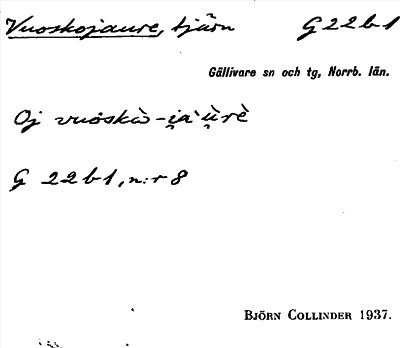 Vuoskojaure, tjärn G22b1
Gällivare sn och tg, Norrb. län.
Oj vuȯskò-i̯a`ụ̀rè
G 22b1, n:r 8
BJÖRN COLLINDER 1937.